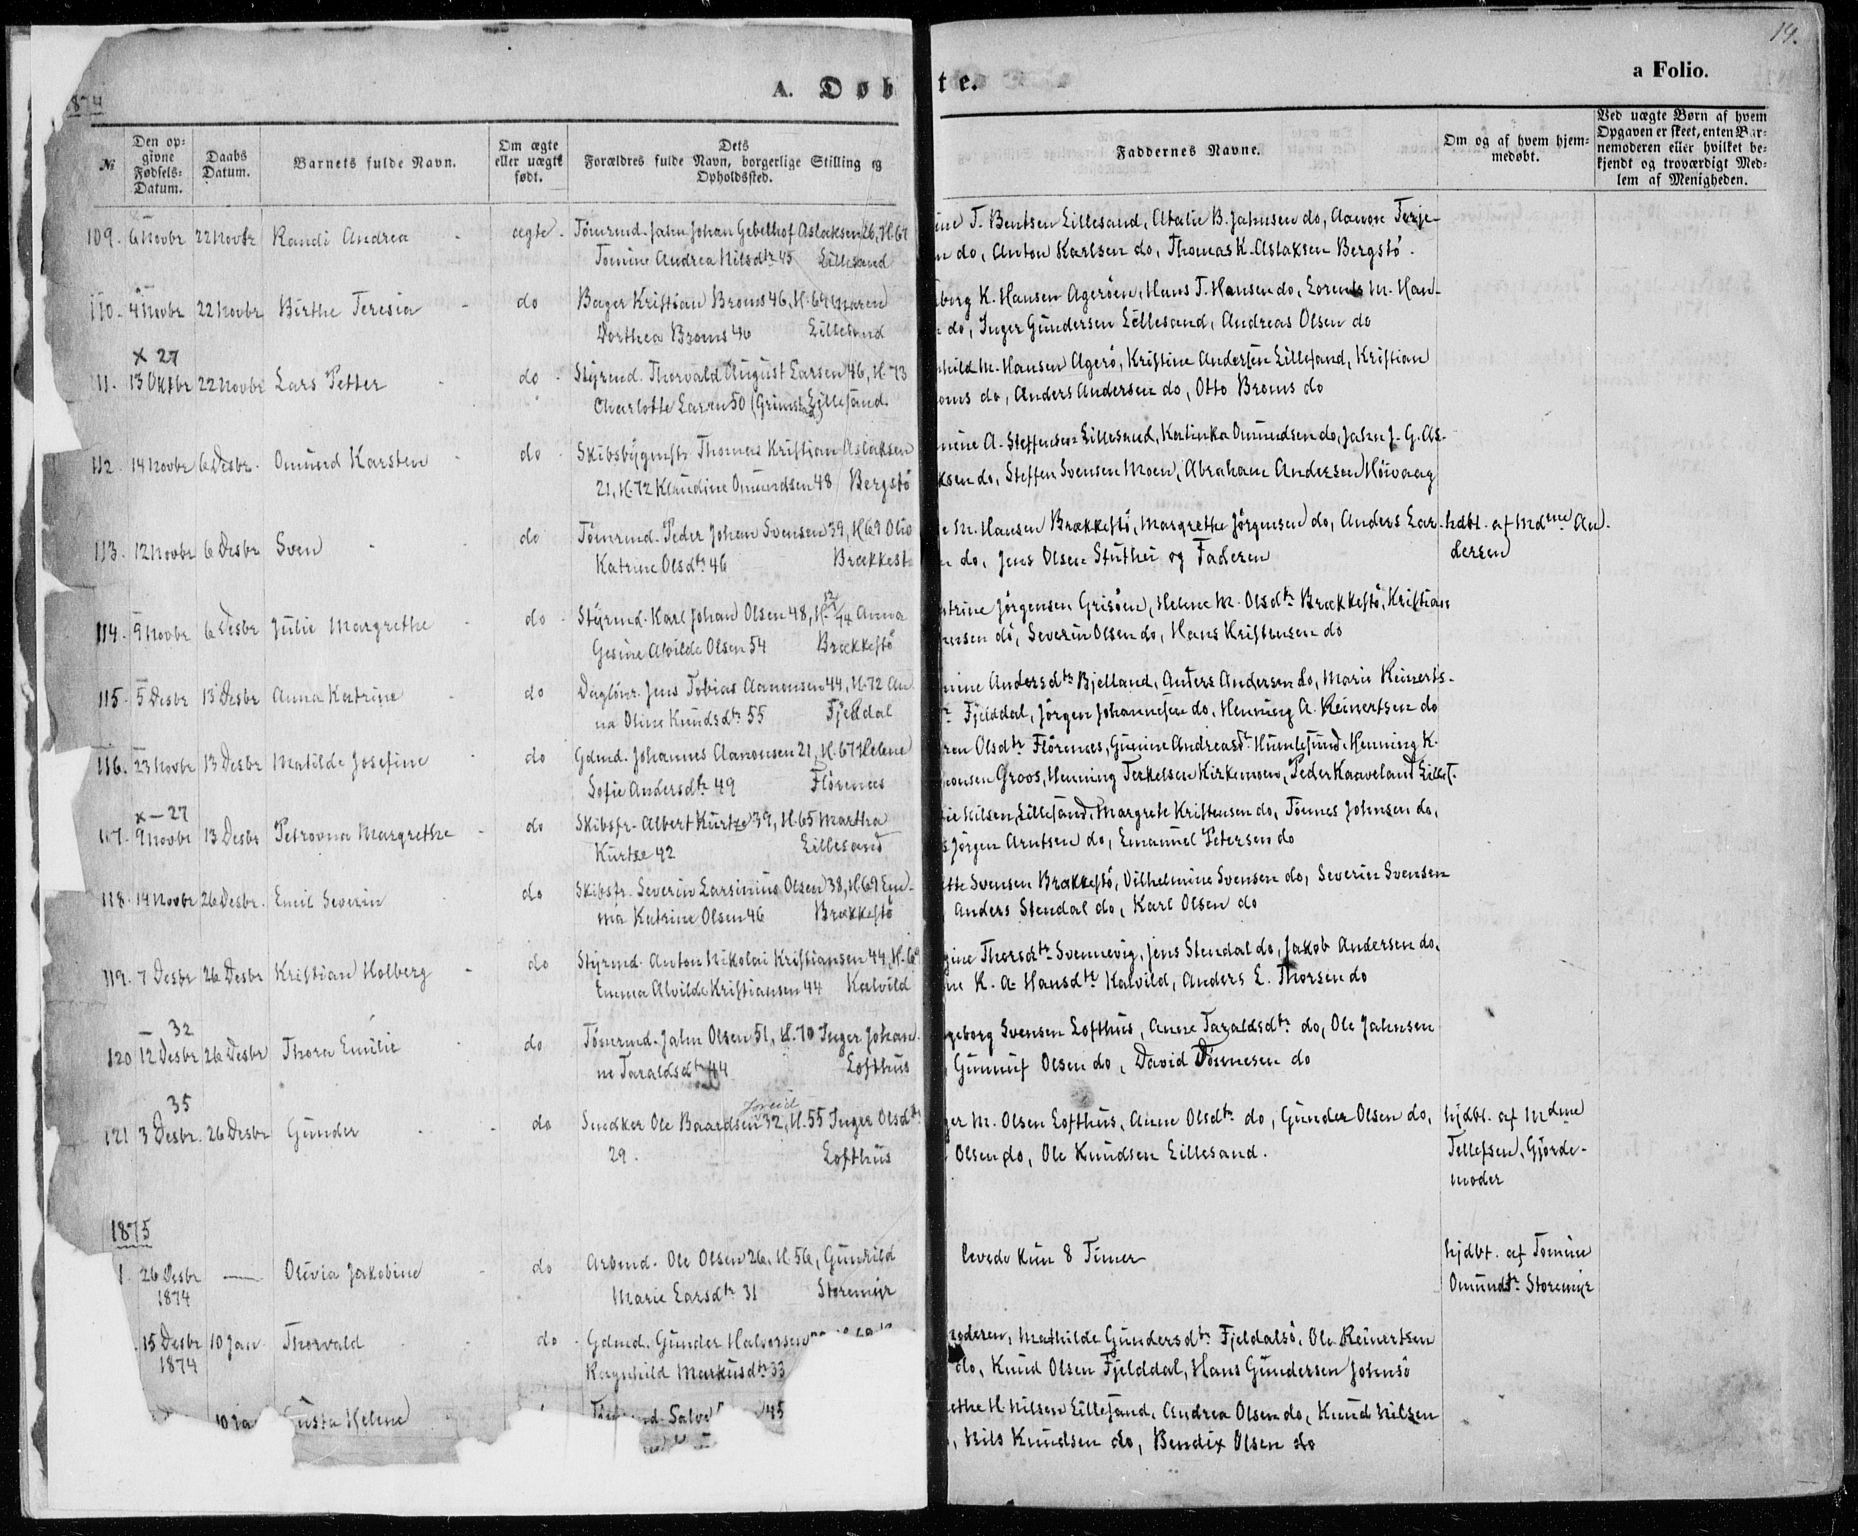 14.
A. Døb
te.
a Folio.
1874
№
Den op-
givne
Fødsels-
Datum.
Daabs
Datum.
Barnets fulde Navn.
Om ægte
eller uægte
født.
Dets
Forældres fulde Navn, borgerlige Stilling og
Opholdssted.
Faddernes Navne.
Om og af hvem hjem-
medøbt.
Ved uægte Børn af hvem
Opgaven er skeet, enten Bar-
nemoderen eller hvilket be-
kjendt og troværdigt Med-
lem af Menigheden.
109. 6 Novbr 22 Novbr Randi Andrea ægte. Tømrmd. Jahn Johan Gebelhof Aslaksen 26, H. 67
Tomine Andrea Nilsdtr 45 Lillesand
ine T. Bentsen Lillesand, Atalie B. Jahnsen do, Aanon Terje-
n do, Anton Karlsen do, Thomas K. Aslaksen Bergstø.
110. 4 Novbr 22 Novbr Birthe Teresia do Bager Kristian Broms 46, H. 64 Maren
Dorthea Broms 40 Lillesand
borg K. Hansen Agerøen, Hans T. Hansen do, Lorents M. Han-
do, Inger Gundersen Lillesand, Andreas Olsen do
x 27
111. 13 Oktbr 22 Novbr Lars Petter do Styrmd. Thorvald August Larsen 46, H. 73
Charlotte Larsen 50 (Grimstad) Lillesand.
hild M. Hansen Agerø, Kristine Andersen Lillesand, Kristian
oms do, Anders Andersen do, Otto Broms do
112. 14 Novbr 6 Desbr. Omund Karsten do Skibsbygmstr. Thomas Kristian Aslaksen
21, H. 72 Klaudine Omundsen 48 Bergstø
mine A. Steffensen Lillesand, Katinka Omundsen do, Jahn J. G. As-
ksen do, Steffen Svensen Moen, Abraham Andersen Høivaag
113. 12 Novbr 6 Desbr Sven do Tømrmd. Peder Johan Svensen 39, H. 69
Katrine Olsdtr 46 Brækkestø
e M. Hansen Brækkestø, Margrethe Jørgensen do, Anders Lar-
n do, Jens Olsen Stuthei og Faderen
hdbt. af Mdme An-
dersen
114. 9 Novbr 6 Desbr Julie Margrethe do Styrmd. Karl Johan Olsen 48, H. 12/74 Anna
Gesine Alvilde Olsen 54 Brækkestø
trine Jørgensen Grisøen, Helene M. Olsdtr Brækkestø, Kristian
ensen do, Severin Olsen do, Hans Kristensen do
115. 5 Desbr 13 Desbr Anna Katrine do Daglönr. Jens Tobias Aanonsen 44, H. 72 An-
na Oline Knudsdtr 55 Fjeldal
nine Andersdtr Bjelland, Anders Andersen do, Marie Reinerts-
Fjelddal, Jörgen Johannesen do, Henning A. Reinertsen do
116. 23 Novbr 13 Desbr Matilde Josefine do Gdmd. Johannes Aanonsen 21, H. 67 Helene
Sofie Andersdtr 49 Flörenes
ren Olsdtr Flörenes, Gunine Andreasdt Humlesund, Henning K.
onsen Groos, Henning Terkelsen Kirkemoen, Peder Kaaveland Lilles.
x-27
117. 9 Novbr 13 Desbr Petrovna Margrethe do Skibsfr. Albert Kurtze 39, H. 65 Martha
Kurtze 42 Lillesand
ie Nilsen, Lillesand, Margrete Kristensen do, Tönnes Johnsen do,
s Jörgen Arntsen do, Emanuel Petersen do
118. 14 Novbr 26 Desbr. Emil Severin do Skibsfr. Severin Larsinius Olsen 38, H. 69 Em-
ma Katrine Olsen 46 Brækkestø
tte Svensen Brækkestø, Vilhelmine Svensen do, Severin Svensen
Anders Stendal do, Karl Olsen do
119. 7 Desbr 26 Desbr Kristian Holberg do Styrmd. Anton Nikolai Kristiansen 44, H. 69
Emma Alvilde Kristiansen 44 Kalvild
gine Thorsdtr Svennevig, Jens Stendal do, Jakob Andersen do,
ne K. A. Hansdtr Kalvild, Anders E. Thorsen do
32
120 12 Desbr 26 Desbr Thora Emilie do Tømrmd. Jahn Olsen 51, H. 70 Inger Johan-
ne Taraldsdtr 44 Lofthus
geborg Svensen Lofthus, Anne Taraldsdtr do, Ole Jahnsen
Gunnuf Olsen do, David Tönnesen do
35
121 3 Desbr. 26 Desbr Gunder do Snedker Ole Baardsen 32, H. 55 Inger Olsdtr
29. Lofthus
ger M. Olsen Lofthus, Anne Olsdtr do, Gunder Olsen do,
Olsen do, Ole Knudsen Lillesand.
hjdbt. af Mdme
Tellefsen, Gjorde-
moder
1875
1. 26 Desbr Olivia Jakobine do Arbmd. Ole Olsen 26, H. 56, Gunhild
1874 Marie Larsdtr 31 Storemyr
levede kun 8 Timer
hjdbt. af Tomine
Omundsdtr. Storemyr
15 Desbr 10 Jan Thorvald do Gdmd. Gunder Halvorsen
1874 Ragnhild Markusdtr 33
Moderen, Mathilde Gundersdtr Fjeldalsø, Ole Reinertsen
do, Knud Olsen Fjelddal, Hans Gundersen Johnsø
10 Ja gusta Helene Salve 45
ethe H Nilsen Lillesand, Andrea Olsen do, Knud Nilsen
, Nils Knudsen do, Bendix Olsen do